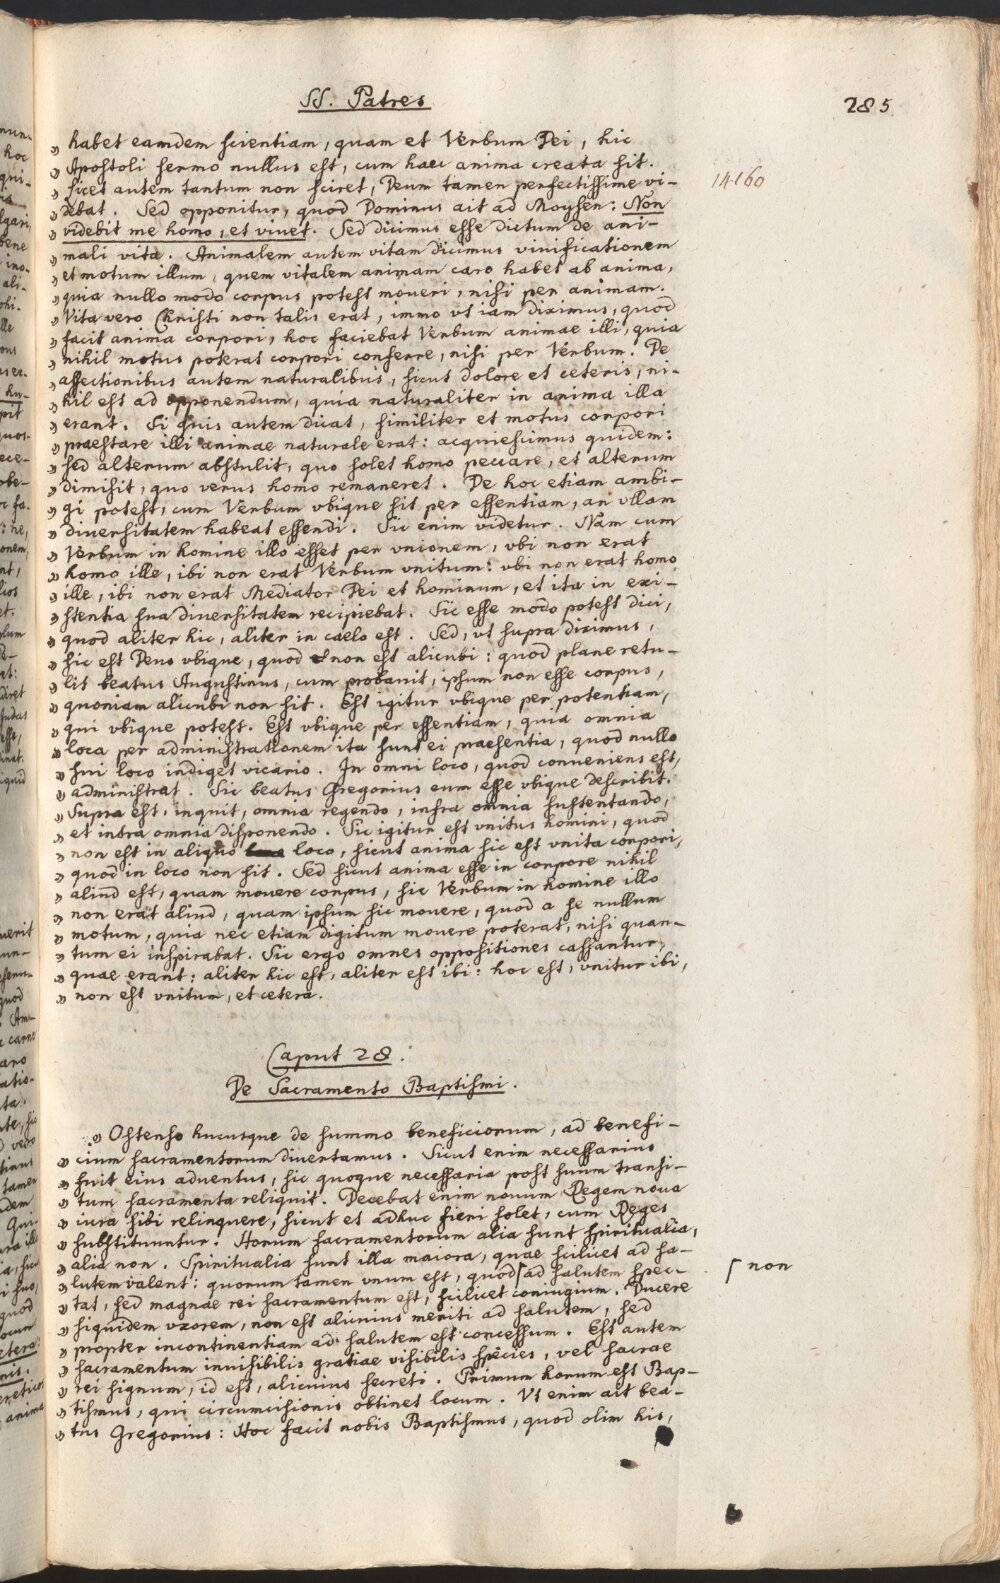 SS. Patres
285
„ habet eamdem scientiam, quam et Verbum Dei, hic
„ Apostoli sermo nullus est, cum haec anima creata sit.
14160
„ licet autem tantum non sciret, Deum tamen perfectissime vi-
„ debat. Sed opponitur, quod Dominus ait ad Moysen: Non
„ videbit me homo, et vivet. Sed dicimus esse dictum de ani-
„ mali vita. Animalem autem vitam dicimus vinificationem
„ et motum illum, quem vitalem animam caro habet ab anima,
„ quia nullo modo corpus potest moueri, nisi per animam.
„ Vita vero Christi non talis erat, immo vt iam diximus, quod
„ facit anima corpori, hoc faciebat Verbum animae illi, quia
„ nihil motus poterat corpori conferre, nisi per Verbum. De
„ affectionibus autem naturalibus, sicut dolore et ceteris, ni-
„ hil est ad opponendum, quia naturaliter in anima illa
„ erant. Si quis autem dicat, similiter et motus corpori
„ praestare illi animae naturale erat: acquiescimus quidem:
„ sed alterum abstulit, quo solet homo peccare, et alterum
„ dimisit, quo verus homo remaneret. De hoc etiam ambi-
„ gi potest, cum Verbum vbique sit per essentiam, an vllam
„ diuersitatem habeat essendi. Sic enim videtur. Nam cum
„ Verbum in homine illo esset per vnionem, vbi non erat
„ homo ille, ibi non erat Verbum vnitum: vbi non erat homo
„ ille, ibi non erat Mediator Dei et hominum, et ita in exi-
„ stentia sua diuersitatem recipiebat. Sic esse modo potest dici,
„ quod aliter hic, aliter in caelo est. Sed, vt supra diximus,
„ sic est Deus vbique, quod non est alicubi: quod plane retu-
„ lit beatus Augustinus, cum probauit, ipsum non esse corpus,
„ quoniam alicubi non sit. Est igitur vbique per potentiam,
„ qui vbique potest. Est vbique per essentiam, quia omnia
„ loca per administrationem ita sunt ei praesentia, quod nullo
„ sui loco indiget vicario. In omni loco, quod conueniens est,
„ administrat. Sic beatus Gregorius eum esse vbique describit.
„ Supra est, inquit, omnia regendo, infra omnia sustentando,
„ et intra omnia disponendo. Sic igitur est vnitus homini, quod
„ non est in aliquo loco, sicut anima sic est vnita corpori,
„ quod in loco non sit. Sed sicut anima esse in corpore nihil
„ aliud est, quam mouere corpus, sic Verbum in homine illo
„ non erat aliud, quam ipsum sic mouere, quod a se nullum
„ motum, quia nec etiam digitum mouere poterat, nisi quan-
„ tum ei inspirabat. Sic ergo omnes oppositiones cassantur,
„ quae erant: aliter hic est, aliter est ibi: hoc est, vnitur ibi,
„ non est vnitum, et cetera.
Caput 28.
De Sacramento Baptismi.
„ Ostenso hucusque de summo beneficiorum, ad benefi-
„ cium sacramentorum diuertamus. Sicut enim necessarius
„ fuit eius aduentus, sic quoque necessaria post suum transi-
„ tum sacramenta reliquit. Decebat enim nouum Regem noua
„ iura sibi relinquere, sicut et adhuc fieri solet, cum Reges
„ substituuntur. Horum sacramentorum alia sunt spiritualia,
„ alia non. Spiritualia sunt illa maiora, quae scilicet ad sa-
„ lutem valent: quorum tamen vnum est, quod ⌈ ad salutem spec-
⌈ non
„ tat, sed magnae rei sacramentum est, scilicet coniugium. Ducere
„ siquidem vxorem, non est alicuius meriti ad salutem, sed
„ propter incontinentiam ad salutem est concessum. Est autem
„ sacramentum inuisibilis gratiae visibilis species, vel sacrae
„ rei signum, id est, alicuius secreti. Primum horum est Bap-
„ tismus, qui circumcisionis obtinet locum. Vt enim ait bea-
„ tus Gregorius: Hoc facit nobis Baptismus, quod olim his,